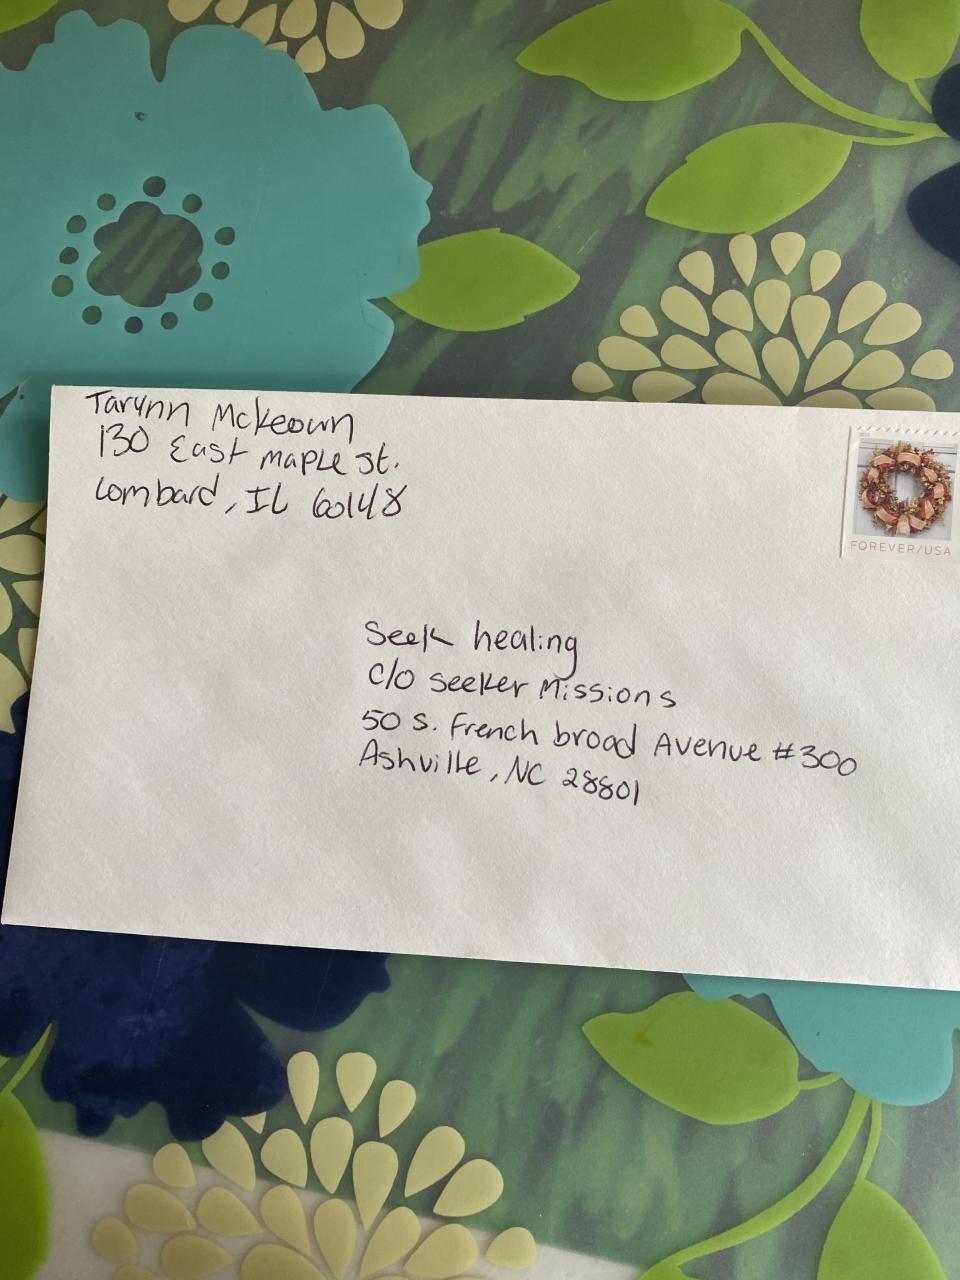 Tarynn McKeown
130 East Maple St.
Lombard, IL 60148
FOREVER/USA
Seek healing
C/O Seeker Missions
50 S. French broad Avenue #300
Ashville, NC 28801